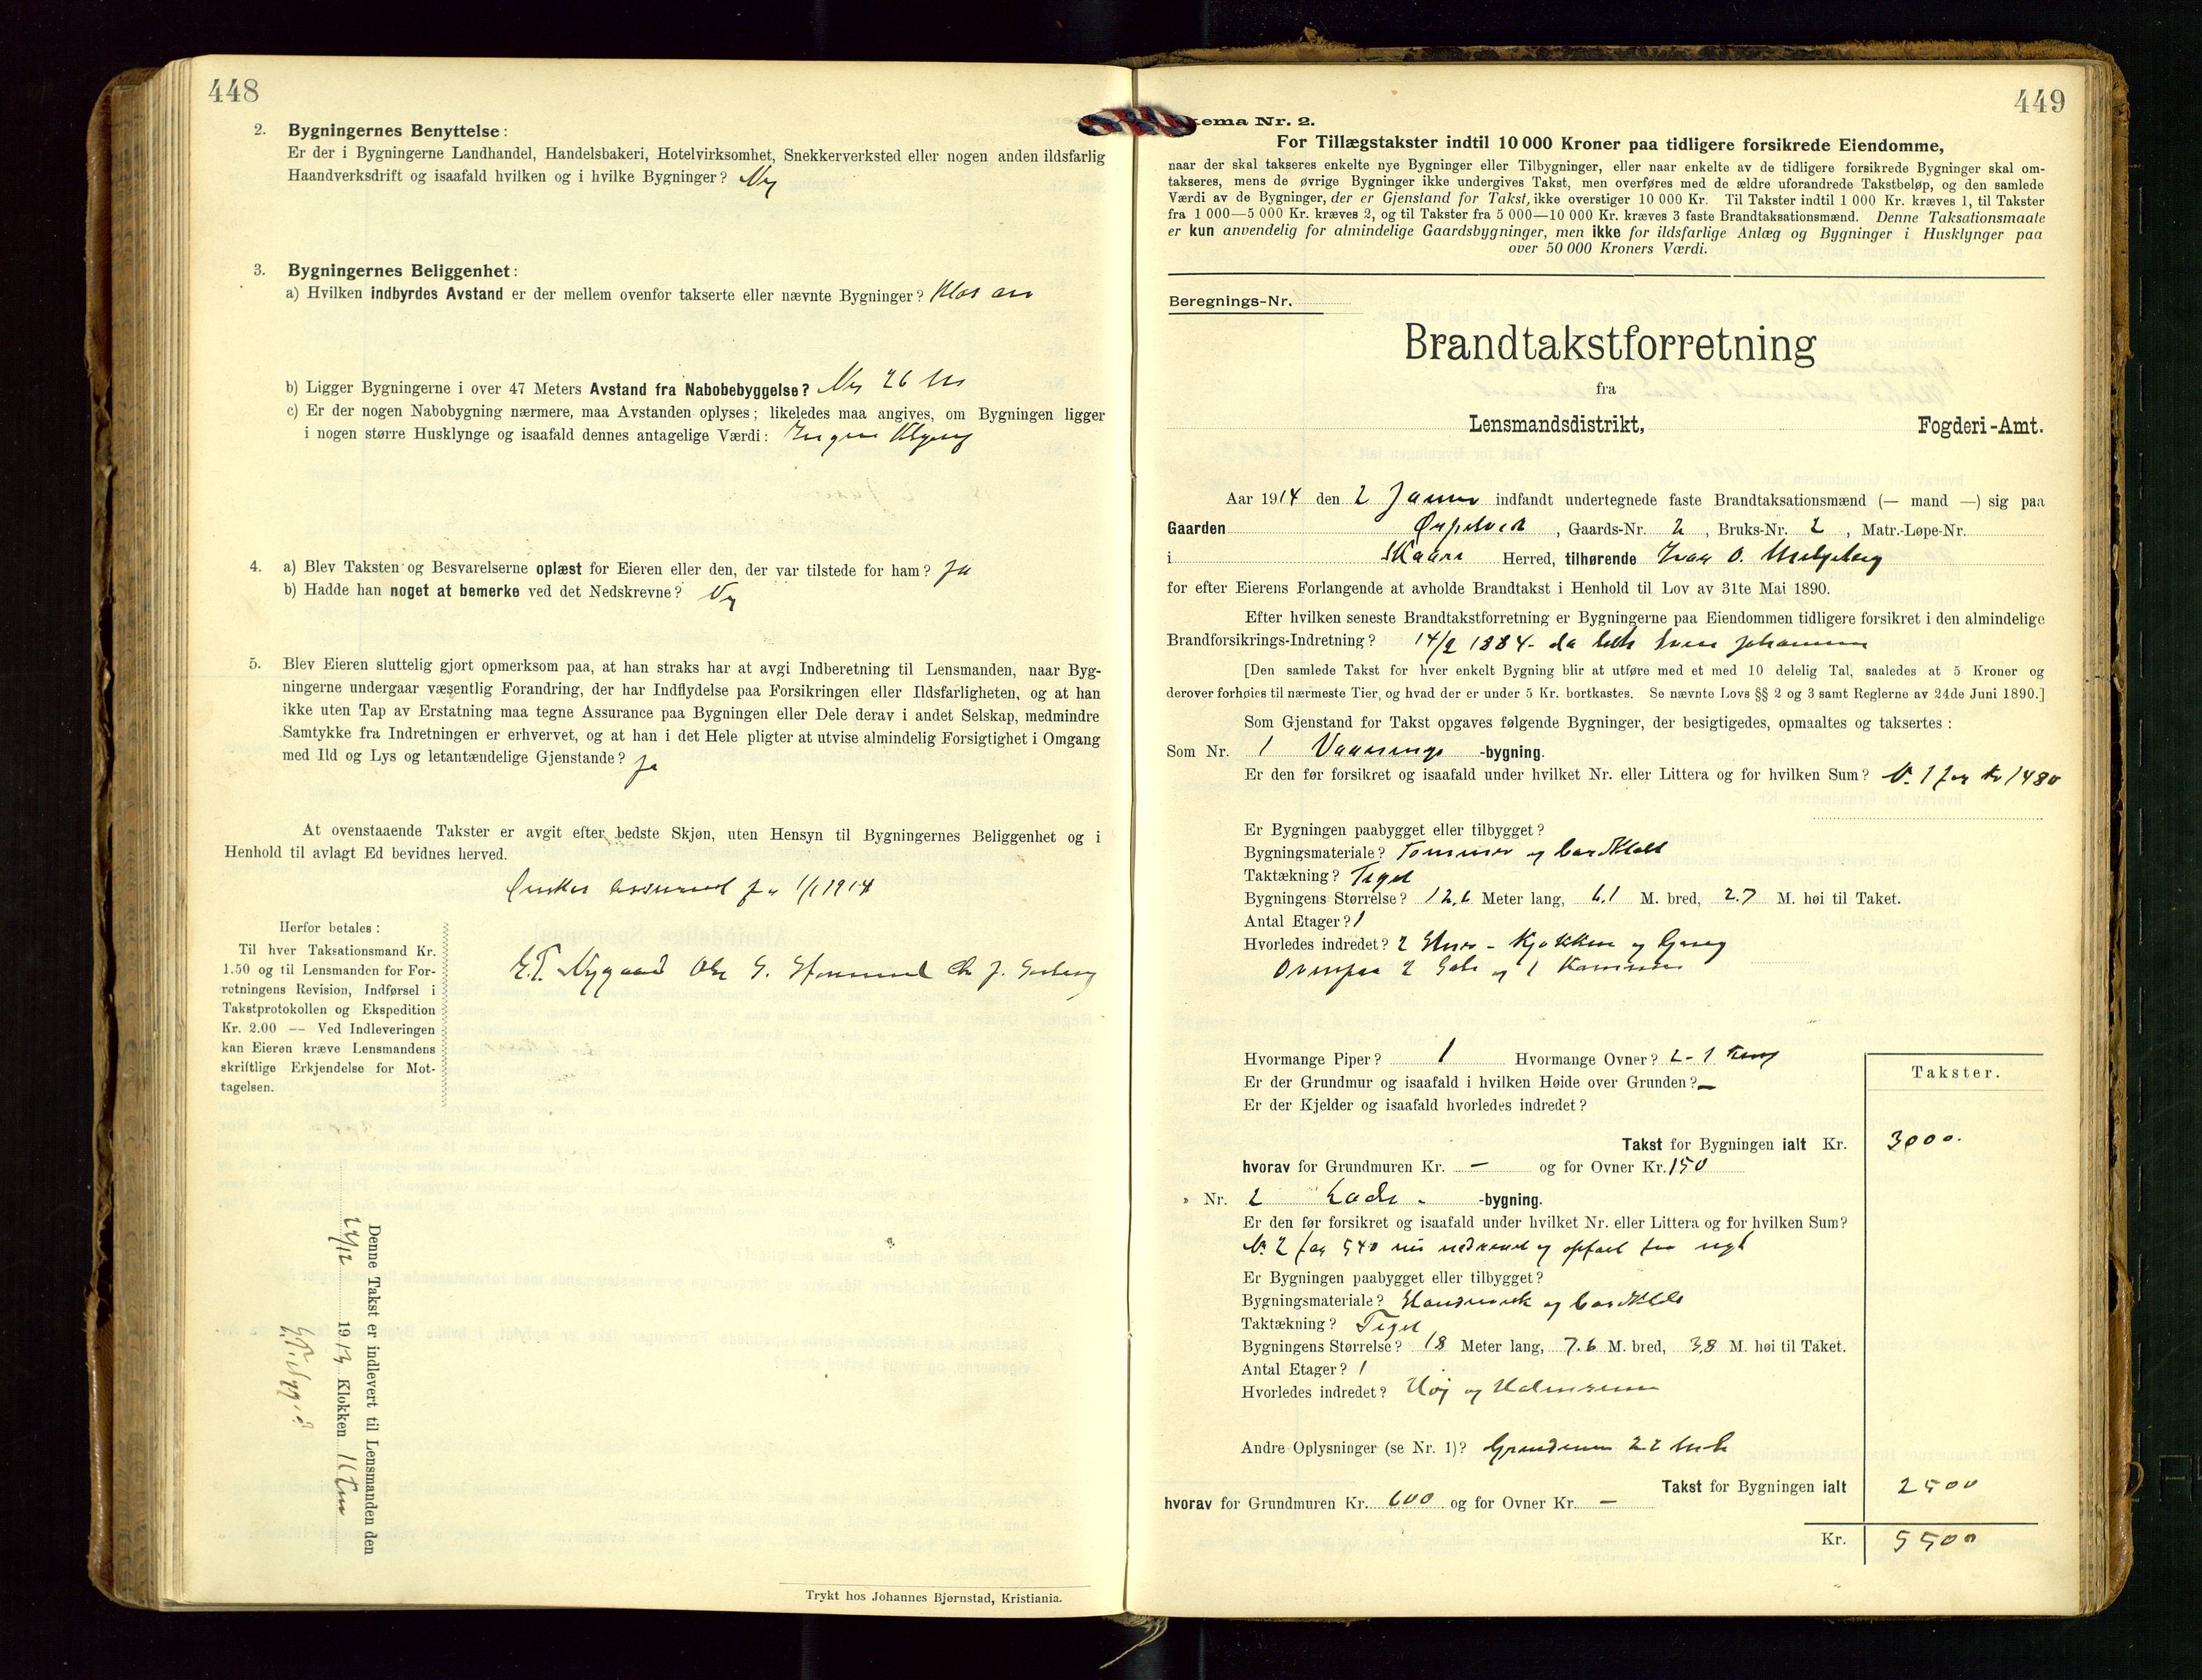 448
2. Bygningernes Benyttelse:
Er der i Bygningerne Landhandel, Handelsbakeri, Hotelvirksomhet, Snekkerverksted eller nogen anden ildsfarlig
Haandverksdrift og isaafald hvilken og i hvilke Bygninger? Nej
3. Bygningernes Beliggenhet:
a) Hvilken indbyrdes Avstand er der mellem ovenfor takserte eller nævnte Bygninger? Klos an
b) Ligger Bygningerne i over 47 Meters Avstand fra Nabobebyggelse? Nej 26 M
c) Er der nogen Nabobygning nærmere, maa Avstanden oplyses; likeledes maa angives, om Bygningen ligger
i nogen større Husklynge og isaafald dennes antagelige Værdi: Ingen Klynge
4. a) Blev Taksten og Besvarelserne oplæst for Eieren eller den, der var tilstede for ham? Ja
b) Hadde han noget at bemerke ved det Nedskrevne? Nej
5. Blev Eieren sluttelig gjort opmerksom paa, at han straks har at avgi Indberetning til Lensmanden, naar Byg-
ningerne undergaar væsentlig Forandring, der har Indflydelse paa Forsikringen eller Ildsfarligheten, og at han
ikke uten Tap av Erstatning maa tegne Assurance paa Bygningen eller Dele derav i andet Selskap, medmindre
Samtykke fra Indretningen er erhvervet, og at han i det Hele pligter at utvise almindelig Forsigtighet i Omgang
med Ild og Lys og letantændelige Gjenstande? Ja
At ovenstaaende Takster er avgit efter bedste Skjøn, uten Hensyn til Bygningernes Beliggenhet og i
Henhold til avlagt Ed bevidnes herved.
Ønskes assureret fra 1/1 1914
E.T. Nygaard Ole G.
Herfor betales:
Til hver Taksationsmand Kr.
1.50 og til Lensmanden for For-
retningens Revision, Indførsel i
Takstprotokollen og Ekspedition
Kr. 2.00 — Ved Indleveringen
kan Eieren kræve Lensmandens
skriftlige Erkjendelse for Mot-
tagelsen.
Denne Takst er indlevert til Lensmanden den
1913 Klokken
Trykt hos Johannes Bjørnstad, Kristiania.
449
ema Nr. 2.
For Tillægstakster indtil 10 000 Kroner paa tidligere forsikrede Eiendomme,
naar der skal takseres enkelte nye Bygninger eller Tilbygninger, eller naar enkelte av de tidligere forsikrede Bygninger skal om-
takseres, mens de øvrige Bygninger ikke undergives Takst, men overføres med de ældre uforandrede Takstbeløp, og den samlede
Værdi av de Bygninger, der er Gjenstand for Takst, ikke overstiger 10 000 Kr. Til Takster indtil 1 000 Kr. kræves 1, til Takster
fra 1 000—5 000 Kr. kræves 2, og til Takster fra 5 000—10 000 Kr. kræves 3 faste Brandtaksationsmænd. Denne Taksationsmaate
er kun anvendelig for almindelige Gaardsbygninger, men ikke for ildsfarlige Anlæg og Bygninger i Husklynger paa
over 50 000 Kroners Værdi.
Beregnings-Nr.
Brandtakstforretning
fra
Lensmandsdistrikt, Fogderi-Amt.
Aar 1914 den 2 Januar indfandt undertegnede faste Brandtaksationsmænd (— mand —) sig paa
Gaarden , Gaards-Nr. 2 , Bruks-Nr. 2 , Matr.-Løpe-Nr.
i Skaare Herred, tilhørende O.
for efter Eierens Forlangende at avholde Brandtakst i Henhold til Lov av 31te Mai 1890.
Efter hvilken seneste Brandtakstforretning er Bygningerne paa Eiendommen tidligere forsikret i den almindelige
Brandforsikrings-Indretning? 14/2 1884 - da
[Den samlede Takst for hver enkelt Bygning blir at utføre med et med 10 delelig Tal, saaledes at 5 Kroner og
derover forhøies til nærmeste Tier, og hvad der er under 5 Kr. bortkastes. Se nævnte Lovs §§ 2 og 3 samt Reglerne av 24de Juni 1890.]
Som Gjenstand for Takst opgaves følgende Bygninger, der besigtigedes, opmaaltes og taksertes:
Som Nr. 1 Vaanings -bygning.
Er den før forsikret og isaafald under hvilket Nr. eller Littera og for hvilken Sum? N. 1 for Kr 1480
Er Bygningen paabygget eller tilbygget?
Bygningsmateriale? Tømmer og bordklædt
Taktækning? Tegel
Bygningens Størrelse? 12,6 Meter lang, 6.1 M. bred, 2.7 M. høi til Taket.
Antal Etager? 1
Hvorledes indredet? 2 Stuer - Kjøkken og Gang
Ovenpaa 2 Sale og 1 Kammer
Hvormange Piper? 1 Hvormange Ovner? 2 - 1
Er der Grundmur og isaafald i hvilken Høide over Grunden? —
Er der Kjelder og isaafald hvorledes indredet?
Takster.
Takst for Bygningen ialt Kr. 3000.
hvorav for Grundmuren Kr. — og for Ovner Kr. 150
» Nr. 2 Lade - -bygning.
Er den før forsikret og isaafald under hvilket Nr. eller Littera og for hvilken Sum?
N. 2 for 540 nu nedrevet og opført fra nyt
Er Bygningen paabygget eller tilbygget?
Bygningsmateriale? Standverk og bordklædt
Taktækning? Tegel
Bygningens Størrelse? 18 Meter lang, 7.6 M. bred, 3,8 M. høi til Taket.
Antal Etager? 1
Hvorledes indredet? Høj og Halmrum
Andre Oplysninger (se Nr. 1)? Grundmur 2.2
Takst for Bygningen ialt 2500
hvorav for Grundmuren Kr. 600 og for Ovner Kr. —
Kr. 5500